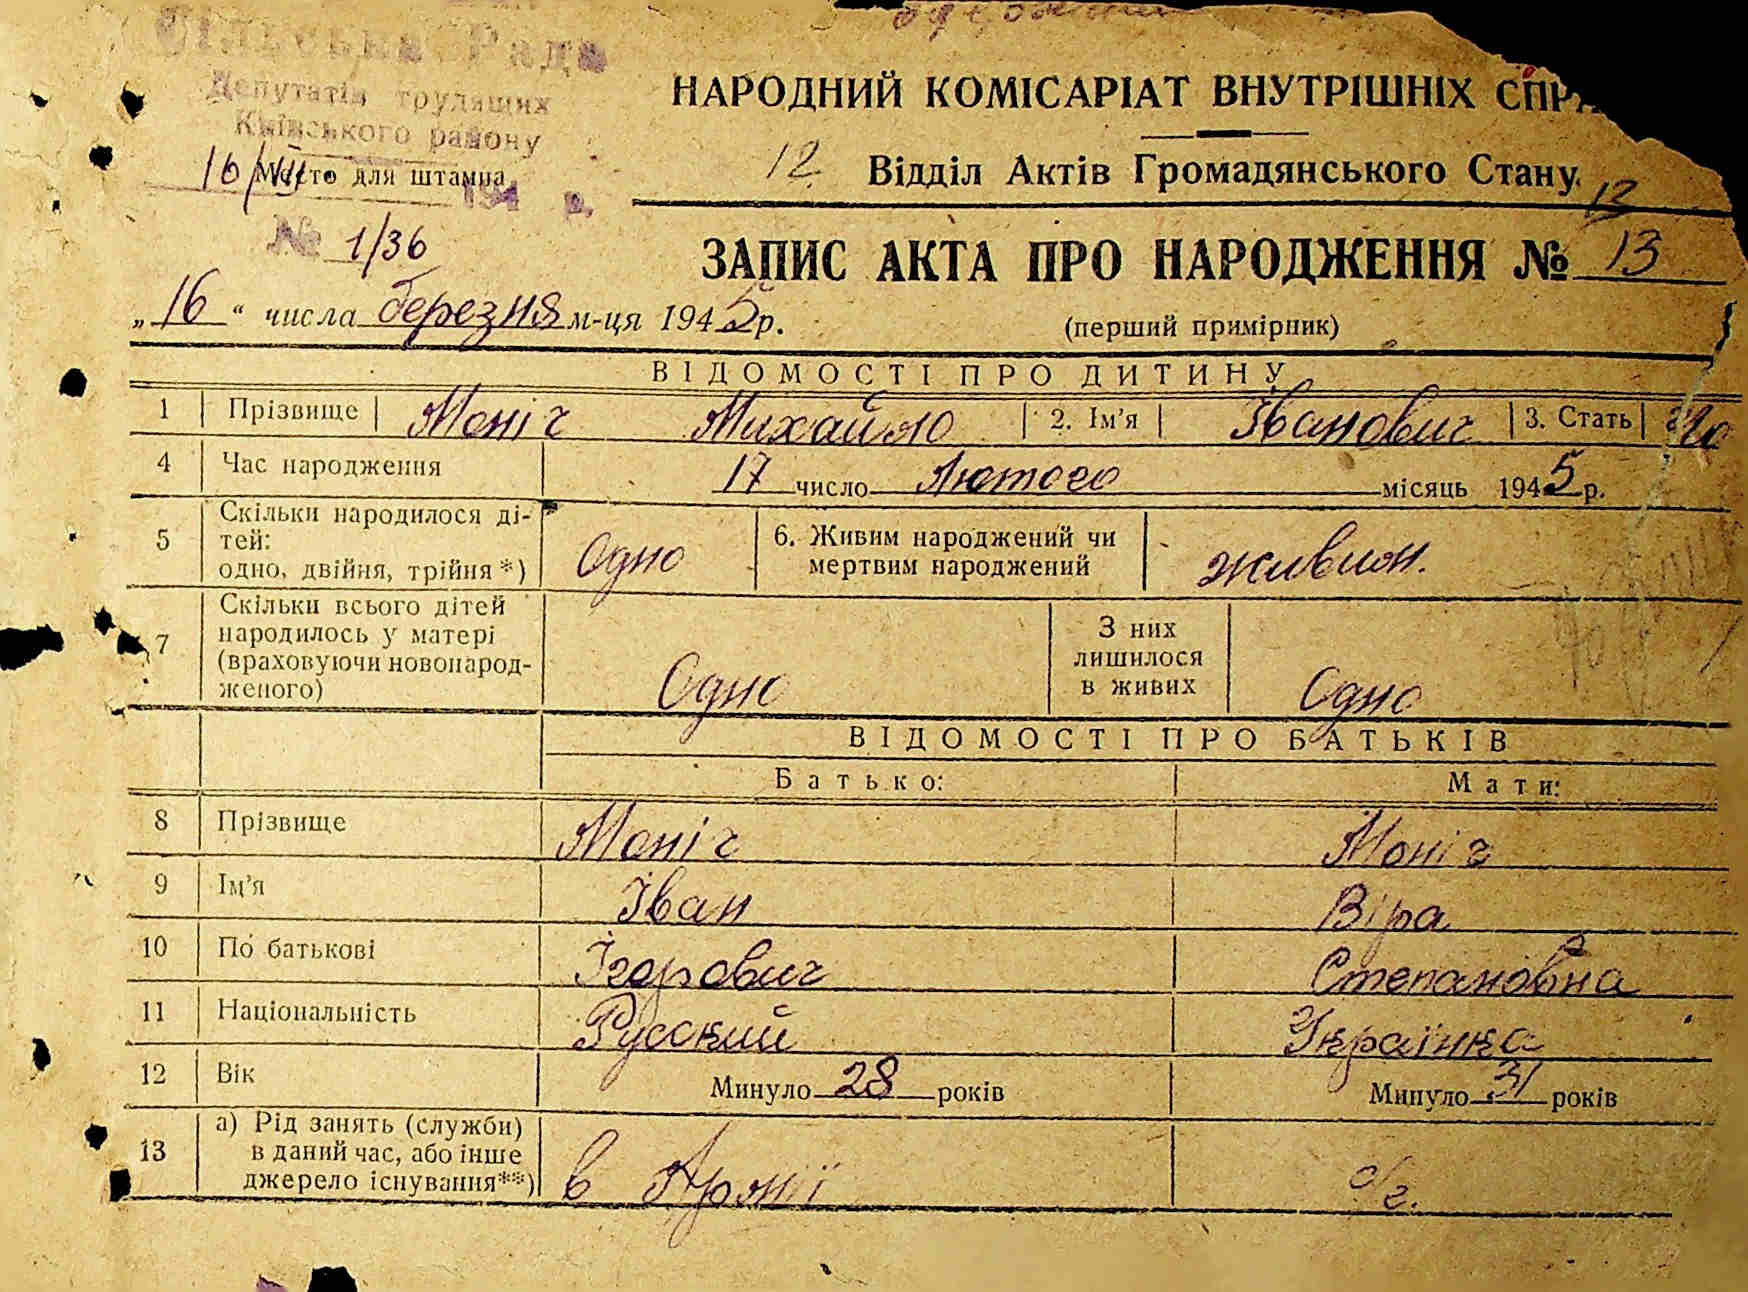 Сільська Рада
Депутатів трудящих
Київського району
Місто для штампа
16/VII. 194 р.
№ 1/36
НАРОДНИЙ КОМІСАРІАТ ВНУТРІШНІХ СПР
12 Відділ Актів Громадянського Стану
12
ЗАПИС АКТА ПРО НАРОДЖЕННЯ № 13
„16“ числа березня м-ця 1945 р. (перший примірник)
ВІДОМОСТІ ПРО ДИТИНУ
1 Прізвище Моніч Михайло 2. Ім'я Іванович 3. Стать
4 Час народження 17 число Лютого місяць 1945 р.
5 Скільки народилося ді-
тей:
одно, двійня, трійня *) Одно 6. Живим народжений чи
мертвим народжений живим.
7 Скільки всього дітей
народилось у матері
(враховуючи новонарод-
женого) Одно З них
лишилося
в живих Одно
ВІДОМОСТІ ПРО БАТЬКІВ
Батько: Мати:
8 Прізвище Моніч Моніч
9 Ім'я Іван Віра
10 По батькові Ігорович Степановна
11 Національність Русский Українка
12 Вік Минуло 28 років Минуло 31 років
13 а) Рід занять (служби)
в даний час, або інше
джерело існування**) в Армії д/г.